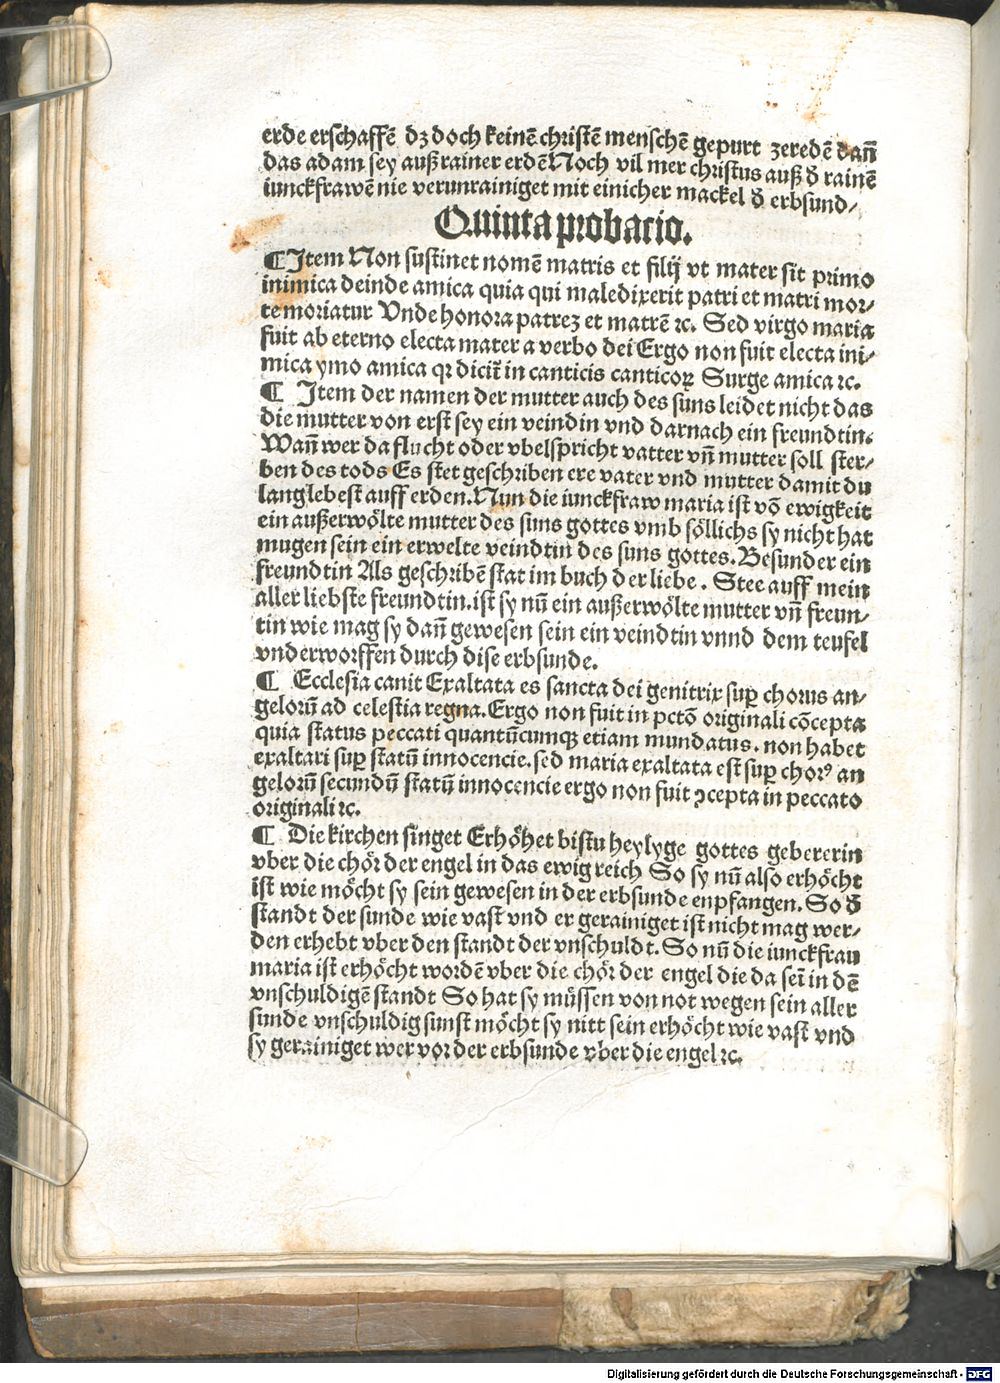 erde erschaffē dz doch keinē christē menschē gepurt zeredē dañ
das adam sey auß rainer erdē Noch vil mer christus auß d̕ rainē
iunckfrawē nie verunrainiget mit einicher mackel d̕ erbsund/
Quinta probacio.
¶ Item Non sustinet nomē matris et filij vt mater sit primo
inimica deinde amica quia qui maledixerit patri et matri mor/
te moriatur Vnde honora patrez et matrē ⁊c. Sed virgo maria
fuit ab eterno electa mater a verbo dei Ergo non fuit electa ini/
mica ymo amica qꝛ dicit̄ in canticis canticoꝝ Surge amica ⁊c.
¶ Item der namen der mutter auch des suns leidet nicht das
die mutter von erst sey ein veindin vnd darnach ein freundtin.
Wañ wer da flucht oder vbelspricht vatter vñ mutter soll ster/
ben des tods Es stet geschriben ere vater vnd mutter damit du
langlebest auff erden. Nun die iunckfraw maria ist vō ewigkeit
ein außerwölte mutter des suns gottes vmb söllichs sy nicht hat
mugen sein ein erwelte veindtin des suns gottes. Besunder ein
freundtin Als geschribē stat im buch der liebe. Stee auff mein
aller liebste freundtin. ist sy nū ein außerwölte mutter vñ freun/
tin wie mag sy dañ gewesen sein ein veindtin vnnd dem teufel
vnderworffen durch dise erbsunde.
¶ Ecclesia canit Exaltata es sancta dei genitrix suꝑ chorus an/
gelorū ad celestia regna. Ergo non fuit in pctō originali cōcepta
quia status peccati quantūcumqꝫ etiam mundatus. non habet
exaltari suꝑ statū innocencie. sed maria exaltata est suꝑ choꝰ an
gelorū secundū statū innocencie ergo non fuit ꝯcepta in peccato
originali ⁊c.
¶ Die kirchen singet Erhöhet bistu heylyge gottes gebererin
vber die chör der engel in das ewig reich So sy nū also erhöcht
ist wie möcht sy sein gewesen in der erbsunde enpfangen. So d̕
standt der sunde wie vast vnd er gerainiget ist nicht mag wer/
den erhebt vber den standt der vnschuldt. So nū die iunckfrau
maria ist erhöcht wordē vber die chör der engel die da seī in dē
vnschuldigē standt So hat sy müssen von not wegen sein aller
sunde vnschuldig sunst möcht sy nitt sein erhöcht wie vast vnd
sy gerainiget wer vor der erbsunde vber die engel ⁊c.
Digitalisierung gefördert durch die Deutsche Forschungsgemeinschaft - DFG